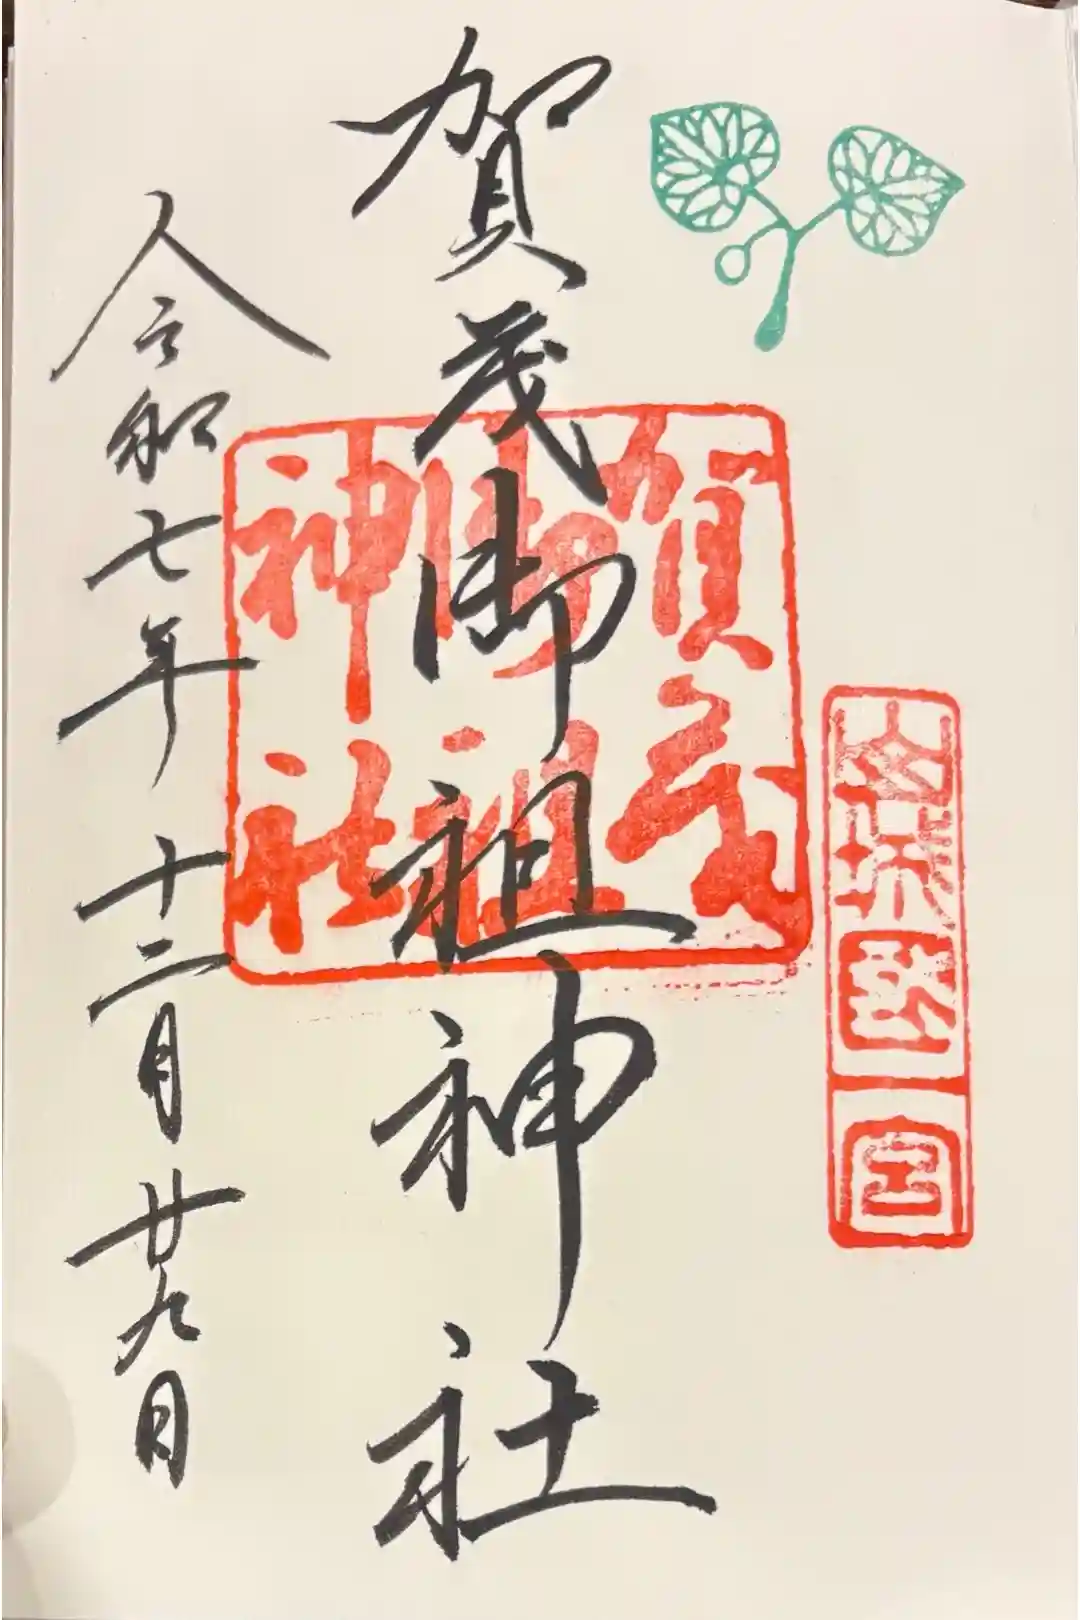 山城國一宮
賀茂
御祖
神社
賀茂御祖神社
令和七年十二月廿九日